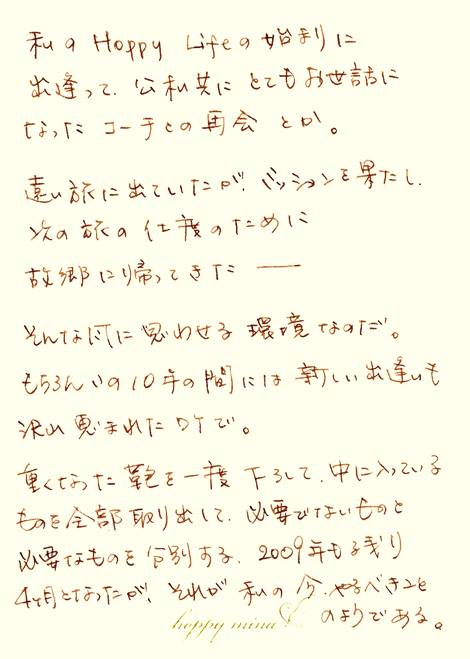 私の Happy Lifeの始まりに
出逢って、公私共に とてもお世話に
なった コーチとの再会 とか。
遠い旅に出ていたが、ミッションを果たし、
次の旅の仕度のために
故郷に帰ってきた ――
そんな風に思わせる 環境なのだ。
もちろん、この10年の間には 新しい出逢いも
沢山 恵まれたワケで。
重くなった 鞄を一度 下ろして、中に入っている
ものを全部取り出して、必要でないものと
必要なものを分別する。2009年も残り
4ヶ月となったが、それが 私の今、やるべきこと
のようである。
happy mina